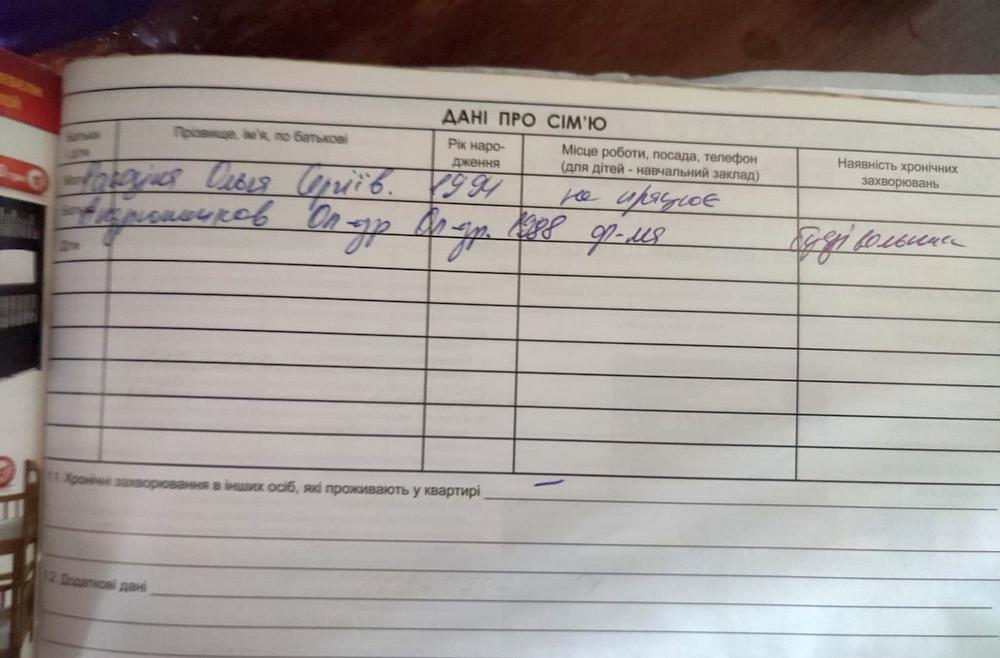 ДАНІ ПРО СІМ'Ю
Батьки Прізвище, ім'я, по батькові Рік наро-дження Місце роботи, посада, телефон (для дітей - навчальний заклад) Наявність хронічних захворювань
Ольга Сергіїв. 1991 не працює
Ол-др Ол-др. 1988 ф-ля будівельник
Діти
11. Хронічні захворювання в інших осіб, які проживають у квартирі —
12. Додаткові дані